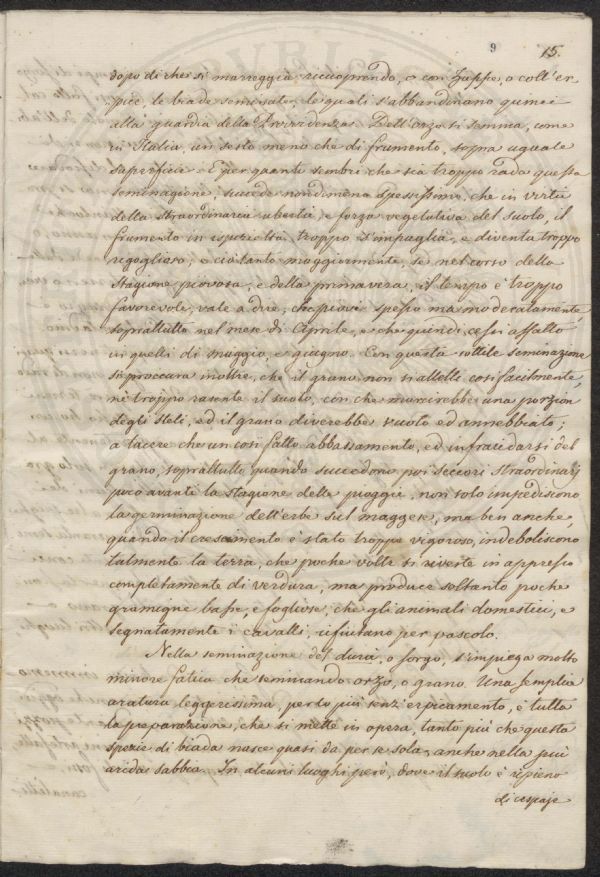 9 15.
dopo di che si marreggia ricuoprendo, o con Zappe, o coll'er-
pice, le biade seminate, le quali s'abbandonano quindi
alla guardia della Provvidenza. Dell'orzo si semina, come
in Italia, un sesto meno che di frumento, sopra uguale
superficie. E per quanto sembri che sia troppo rada questa
seminagione, succede nondimeno spessissimo, che in virtù
della straordinaria ubertà, e forza vegetativa del suolo, il
frumento in ispecieltà troppo s'impaglia, e diventa troppo
rigoglioso; e ciò tanto maggiormente, se nel corso della
Stagione piovosa, e della primavera, il tempo è troppo
favorevole, vale a dire, che piovi spesso ma moderatamente,
soprattutto nel mese di Aprile, e che quindi cessi affatto
in quelli di maggio, e giugno. Con questa sottile seminazione
si proccura inoltre, che il grano non si alletti così facilmente,
nè troppo rasente il suolo, con che marcirebbe una porzion
degli steli, ed il grano diverebbe vuoto ed annebbiato;
a tacere che un così fatto abbassamento, ed infracidarsi del
grano, soprattutto quando succedono poi seccori straordinarj
poco avanti la stagione delle pioggie, non solo impediscono
la germinazione dell'erbe sul maggese, ma ben anche,
quando il crescimento è stato troppo vigoroso, indeboliscono
talmente la terra, che poche volte si riveste in appresso
completamente di verdura, ma produce soltanto poche
gramigne basse, e fogliose, che gli animali domestici, e
segnatamente i cavalli, rifiutano per pascolo.
Nella seminazione del durà, o sorgo, s'impiega molto
minore fatica che seminando orzo, o grano. Una semplice
aratura leggerissima, per lo più senz'erpicamento, è tutta
la preparazione, che si mette in opera, tanto più che questa
spezie di biada nasce quasi da per se sola, anche nella più
arida sabbia. In alcuni luoghi però, dove il suolo è ripieno
di cespaje